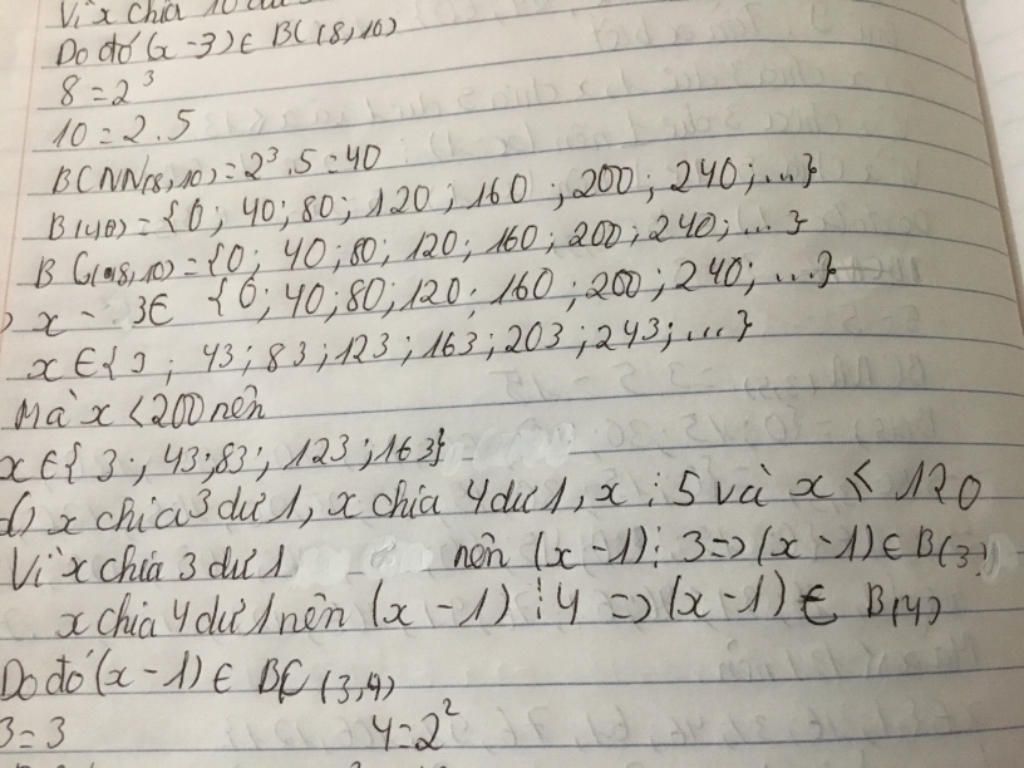 Vì x chia 10
Do đó (x - 3) ∈ BC(8,10)
8 = 2³
10 = 2.5
BCNN(8,10) = 2³.5 = 40
B(40) = {0; 40; 80; 120; 160; 200; 240; ...}
BC(8,10) = {0; 40; 80; 120; 160; 200; 240; ...}
x - 3 ∈ {0; 40; 80; 120; 160; 200; 240; ...}
x ∈ {3; 43; 83; 123; 163; 203; 243; ...}
Mà x < 200 nên
x ∈ {3; 43; 83; 123; 163}
d) x chia 3 dư 1, x chia 4 dư 1, x ⋮ 5 và x ≤ 120
Vì x chia 3 dư 1 nên (x - 1) ⋮ 3 => (x - 1) ∈ B(3)
x chia 4 dư 1 nên (x - 1) ⋮ 4 => (x - 1) ∈ B(4)
Do đó (x - 1) ∈ BC(3,4)
3 = 3 4 = 2²